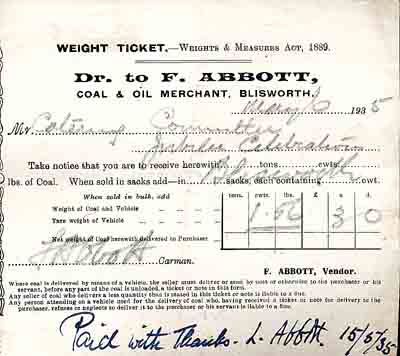 WEIGHT TICKET.—WEIGHTS & MEASURES ACT, 1889.
Dr. to F. ABBOTT,
COAL & OIL MERCHANT, BLISWORTH.
May 6 1935
Mr. Catering Committee
Jubilee Celebration
Take notice that you are to receive herewith tons cwts.
lbs. of Coal. When sold in sacks add—in Blisworth sacks, each containing cwt.
When sold in bulk, add tons. cwts. lbs. £ s. d.
Weight of Coal and Vehicle
Tare weight of Vehicle 3 0
Net weight of Coal herewith delivered to Purchaser
Abbott Carman.
F. ABBOTT, Vendor.
Where coal is delivered by means of a vehicle, the seller must deliver or send by post or otherwise to the purchaser or his
servant, before any part of the coal is unloaded, a ticket or note in this form.
Any seller of coal who delivers a less quantity than is stated in this ticket or note is liable to a fine.
Any person attending on a vehicle used for the delivery of coal who, having received a ticket or note for delivery to the
purchaser, refuses or neglects to deliver it to the purchaser or his servant is liable to a fine.
Paid with Thanks. L. Abbott. 15/5/35